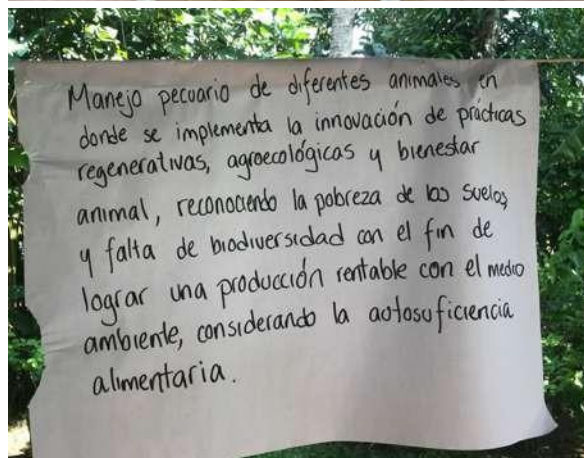 Manejo pecuario de diferentes animales en
donde se implementa la innovación de prácticas
regenerativas, agroecológicas y bienestar
animal, reconociendo la pobreza de los suelos,
y falta de biodiversidad con el fin de
lograr una producción rentable con el medio
ambiente, considerando la autosuficiencia
alimentaria.